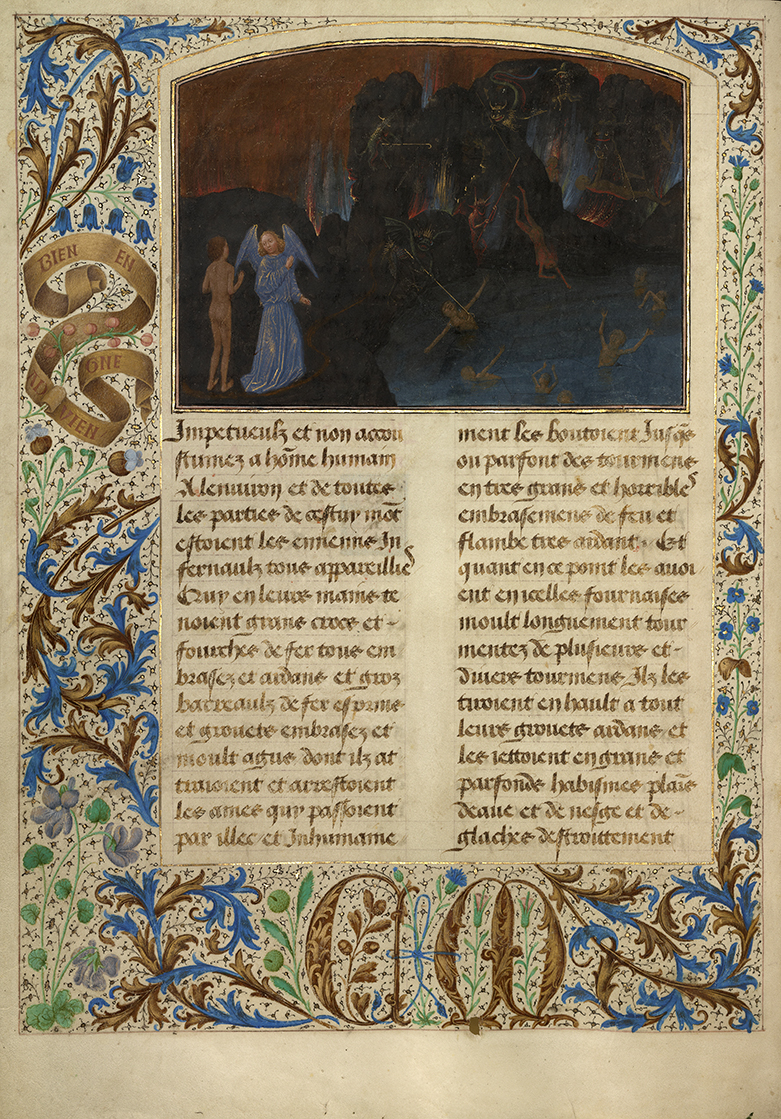 BIEN EN
ADVIEN
GNE
Impetueulz et non accou
stumez a hõme humain
A lenuiron et de toutes
les parties de cestuy mõt
estoient les ennemis In
fernaulz tous appareillies
Quy en leurs mains te
noient grans crocs et
fourches de fer tous em
brasez et ardans et gros
barreaulz de fer
et grouets embrasez et
moult agus dont ilz at
traioient et arrestoient
les ames quy passoient
par illec et Inhumaine
ment les boutoient Jusq̃s
ou parfont des tourmens
en tres grans et horribles
embrasemens de feu et
flambe tres ardant Et
quant en ce point les auoi
ent en icelles fournaises
moult longuement tour
mentez de plusieurs et
diuers tourmens Ilz les
tiroient en hault a tout
leurs grouets ardans et
les iettoient en grans et
parfonds habismes plaĩs
deaue et de neige et de
glaches destroittement
CM